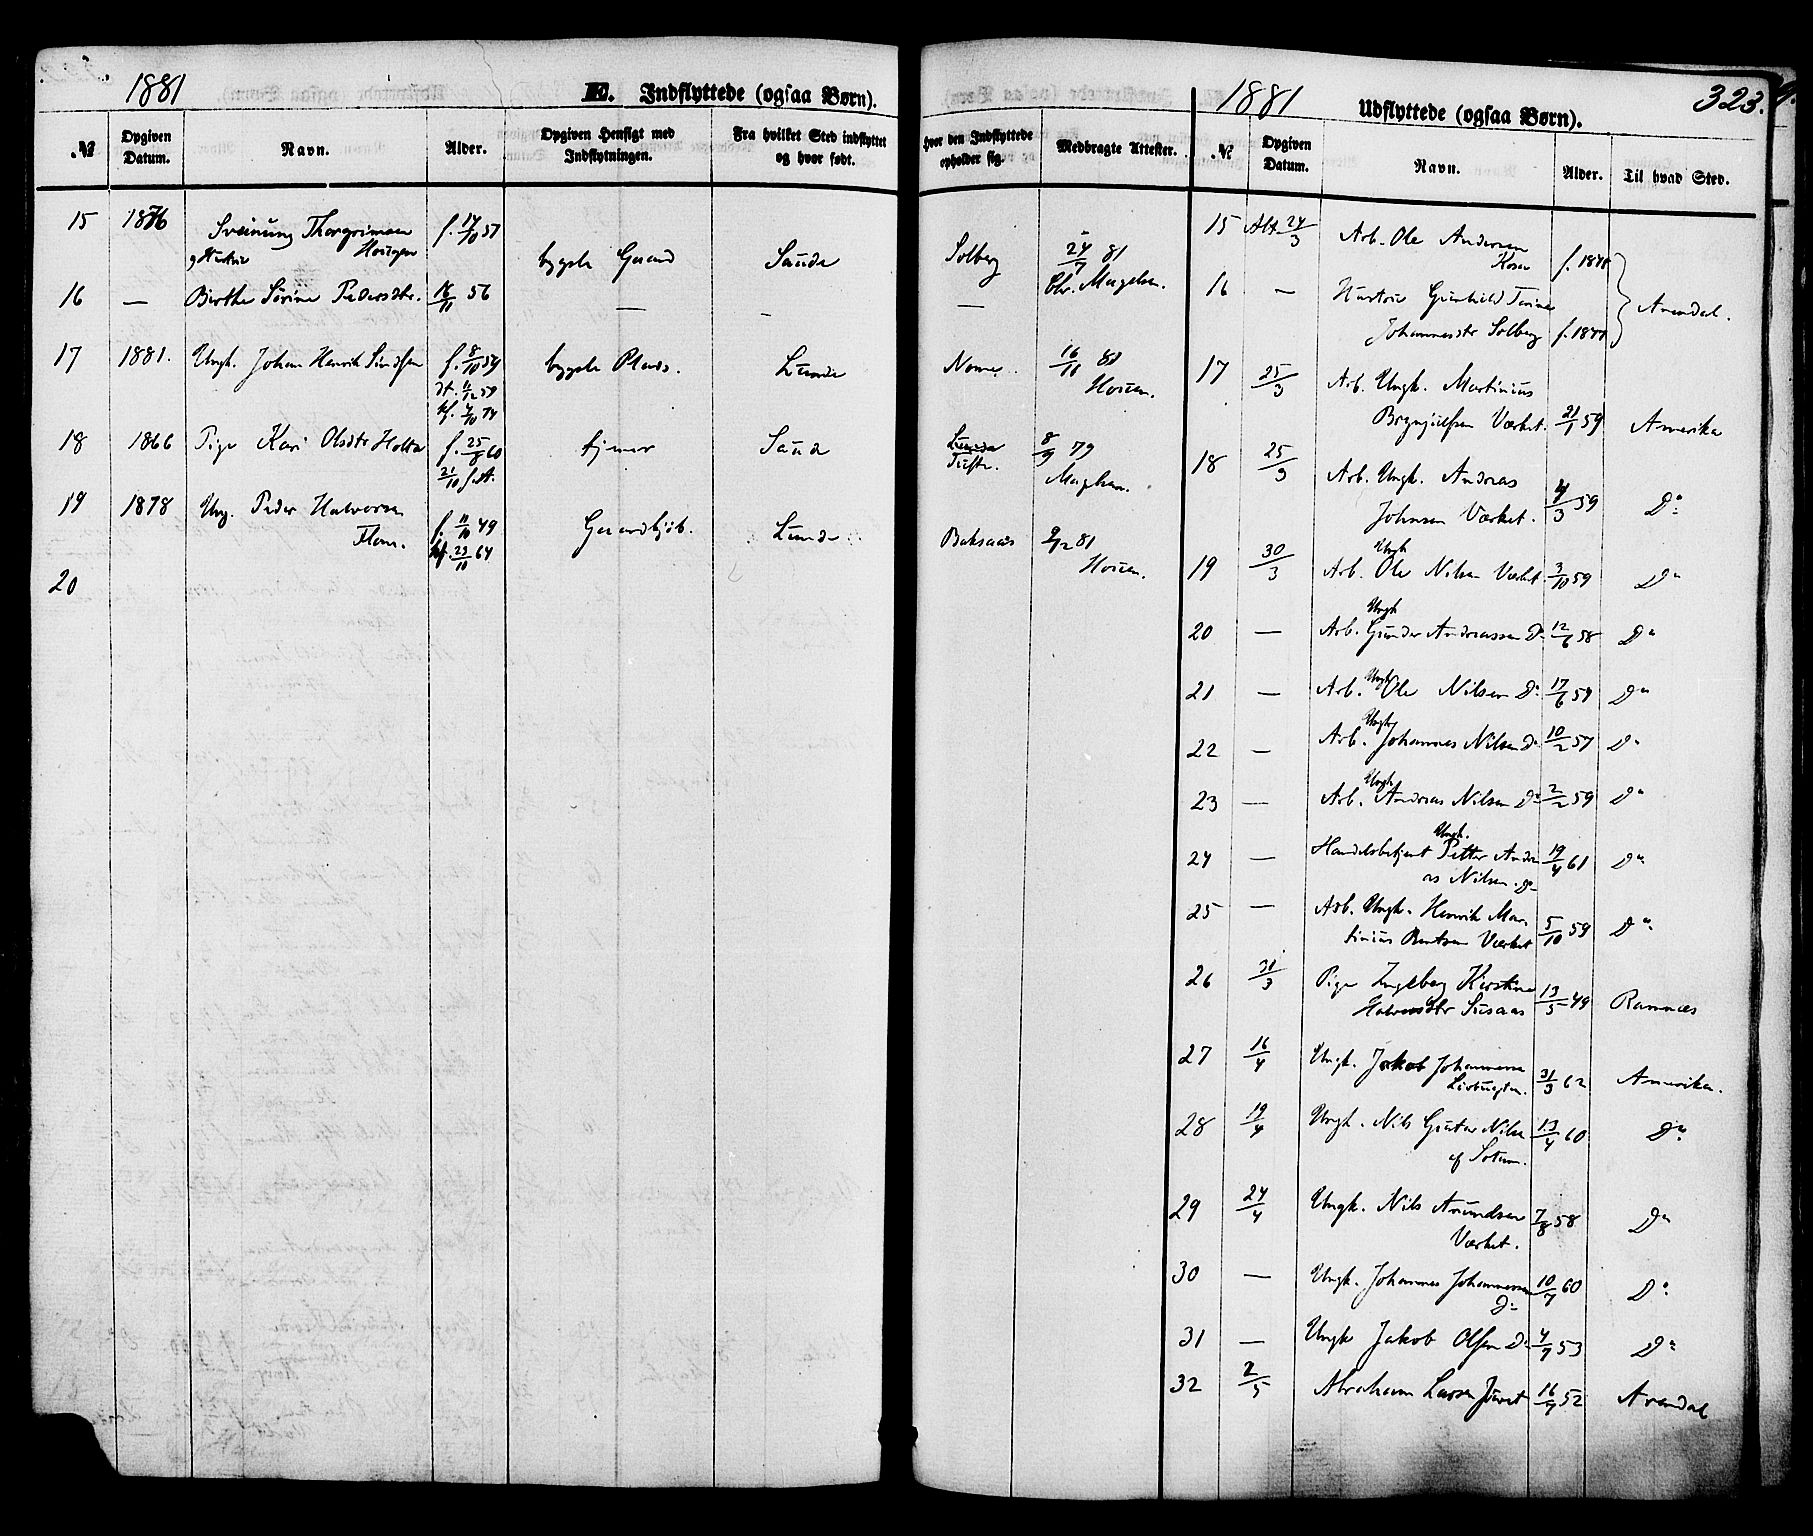 1881
E. Indflyttede (ogsaa Børn).
№
Opgiven Datum.
Navn.
Alder.
Opgiven Hensigt med Indflytningen.
Fra hvilket Sted indflyttet og hvor født.
Hvor den Indflyttede opholder sig.
Medbragte Attester.
15 1876 Sveinung Thorgrimsen f. 14/10 57
Hougen
bygsle Gaard Saude Solberg 24/7 81
Chr. Magelsen.
16 — Birthe Sörine Pedersdtr. 16/11 56 — — —
17 1881. Ungk. Johan Henrik f. 8/10 59 bygsle Plads. Lunde Nome 16/11 81
dt. 11/12 59 Houen.
kf. 4/10 74
18 1866 Pige Kari Olsdtr Holta f. 25/8 60 tjener Saude Lunde 8/9 79
21/10 Magelsen.
19 1878 Ung. Peder Halvorsen
Flom. f. 11/10 49 Gaardkjöb. Lunde Baksaas 9/12 81
kf. 23/10 64 Houen.
20
1881
Udflyttede (ogsaa Børn).
323.
№
Opgiven Datum.
Navn.
Alder.
Til hvad Sted.
15 24/3 Arb. Ole Andersen
f. 1848
16 — Hustru Gunhild Torine Arendal.
Johannesdtr Solberg
17 25/3 Arb. Ungk. Martinius
Brynjulfsen Værket. 21/1 59 Amerika
18 25/3 Arb. Ungk. Andreas
Johnsen Værket. 4/3 59 Do
19 30/3 Arb. Ungk Ole Nilsen Værket 3/10 59 Do
20 — Arb. Ungk Gunder Andreassen Do 12/6 58 Do
21 — Arb. Ungk Ole Nilsen Do 17/6 59 Do
22 — Arb. Ungk Johannes Nilsen Do 10/2 57 Do
23 — Arb. Ungk Andreas Nilsen Do 2/2 59 Do
24 — Handelsbetjent Ungk. Petter Andre
as Nilsen. Do 19/4 61 Do
25 — Arb. Ungk. Henrik Mar-
tinius Bentsen Værket 5/10 59 Do
26 31/3 Pige Ingeborg Kirstine
Halvorsdtr 13/5 49 Ramnæs
27 16/4 Ungk. Jakob Johannesen
31/3 62 Amerika.
28 19/4 Ungk. Nils Gustav Nilsen
af 13/4 60 Do
29 24/4 Ungk. Nils Amundsen
Værket. 7/8 58 Do
30 — Ungk. Johannes Johannessen
Do 10/7 60 Do
31 — Ungk Jakob Olsen Do 4/9 53 Do
32 2/5 Abraham Larsen 16/9 52 Arendal